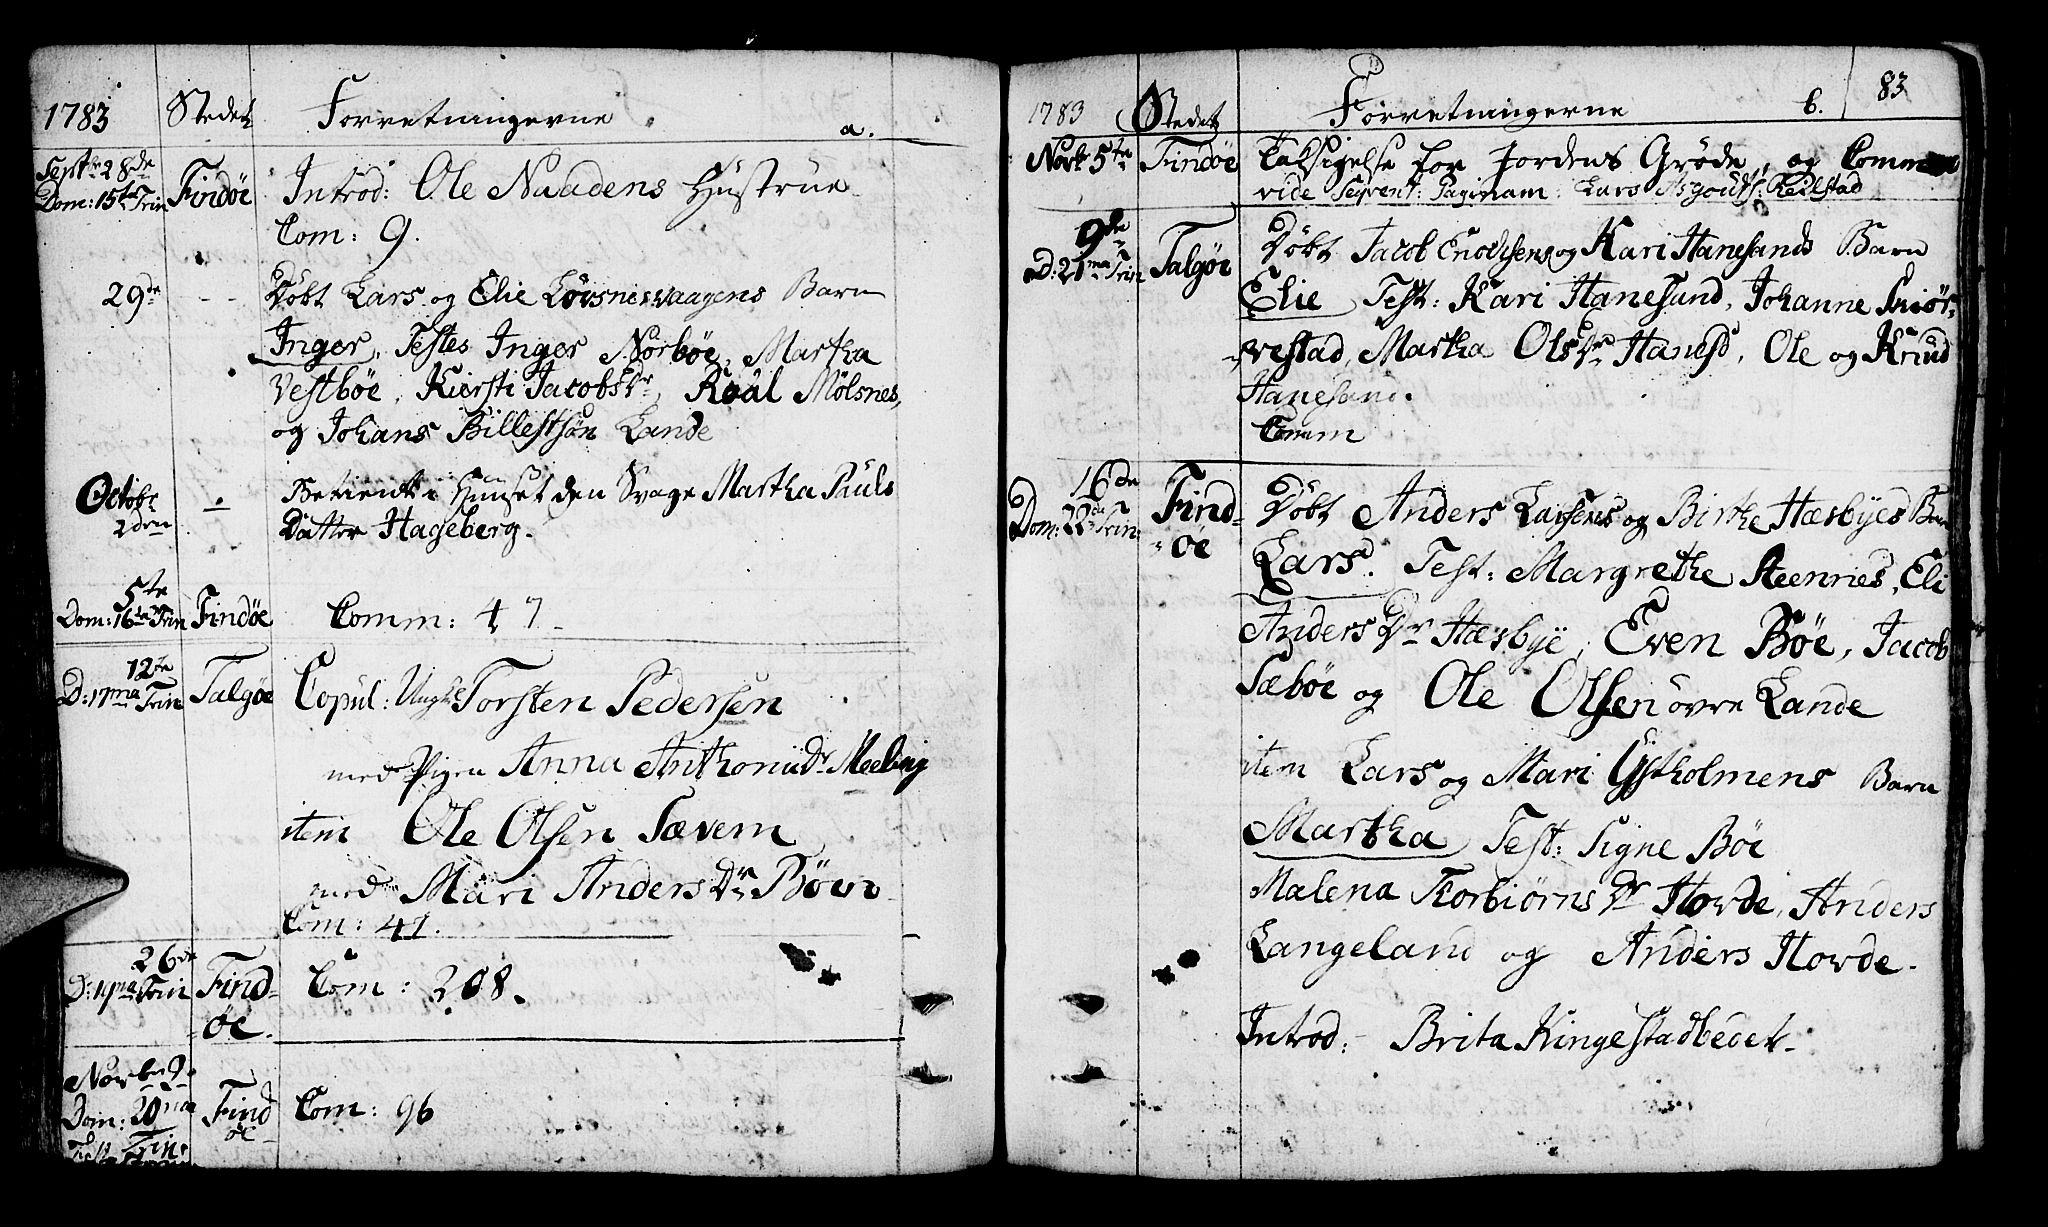 1783 Stedet Forretningerne a.
Septbr 28de
Dom: 15ta Trin Findöe Introd: Ole Naadens Hustrue
Com: 9.
29de - - Döbt Lars og Elie Löisnesvaagens Barn
Inger, Testes Inger Norböe, Martha
Vestböe, Kiersti Jacobs Dr, Roal Mölsnes,
og Johans Billestsön Lande
Octobr
2den Betient i Huuset den Svage Martha Pauls
Datter Hageberg.
5te
Dom: 16de Trin Findöe Comm: 47
12te
D: 17ma Trin Talgöe Copul: Ungk: Torsten Pedersen
med Pigen Anna Anthoni Dr Meeling
item Ole Olsen Sævem
med Mari Anders Dr Böen
Com: 41.
26de
D: 19na Trin Find-
öe. Com: 208.
Novbr 2
Dom: 20ma
Trin Find
öe Com: 96
1783 Stedet Forretningerne b. 83
Novb 5te Findöe Taksigelse for Jordens Gröde, og Comm
vide seqvent: Paginam: Lars Reilstad
9de
D: 21ma Trin Talgöe Döbt Jacob Enochsens og Kari Hanesands Barn
Elie Test: Kari Hanesand, Johanne Skiör-
vestad, Martha Ols Dr Hanesd, Ole og Knud
Hanesand.
Comm
16de
Dom: 22da Trin Find-
öe Döbt Anders Larsens og Birthe Hæsbyes Barn
Lars. Test: Margrethe Steennes, Eli
Anders Dr Hæsbye, Even Böe, Jacob
Sæböe og Ole Olsen övre Lande
item Lars og Mari Ystholmens Barn
Martha Test: Signe Böe
Malena Torbiörns Dr Horde, Anders
Langeland og Anders Horde.
Introd: Brita Kingestadbeeet